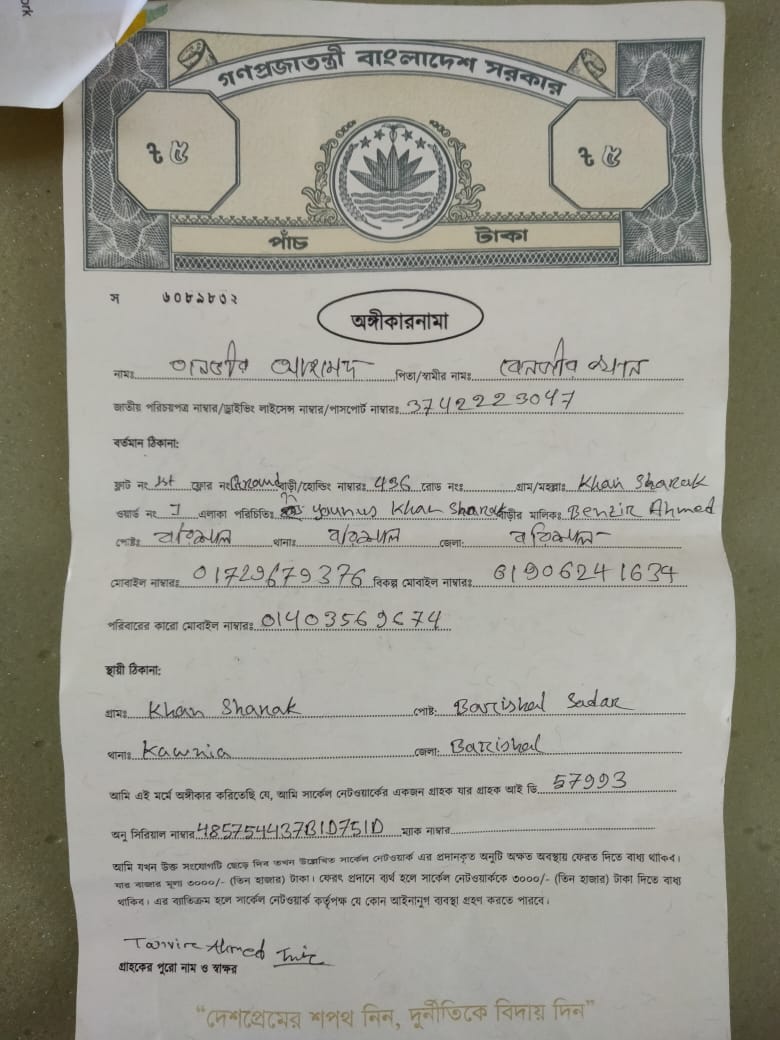 ork
গণপ্রজাতন্ত্রী বাংলাদেশ সরকার
৳ ৫ ৳ ৫
পাঁচ টাকা
স ৬০৮৯৮৩২
অঙ্গীকারনামা
নামঃ তানভীর আহমেদ পিতা/স্বামীর নামঃ বেনজীর খান
জাতীয় পরিচয়পত্র নাম্বার/ড্রাইভিং লাইসেন্স নাম্বার/পাসপোর্ট নাম্বারঃ 3742223047
বর্তমান ঠিকানা:
ফ্লাট নং 1st ফ্লোর নং Ground বাড়ী/হোল্ডিং নাম্বারঃ 496 রোড নংঃ গ্রাম/মহল্লাঃ Khan Sharak
ওয়ার্ড নং 1 এলাকা পরিচিতিঃ Younus Khan Sharak বাড়ীর মালিকঃ Benzir Ahmed
পোষ্টঃ বরিশাল থানাঃ বরিশাল জেলা: বরিশাল
মোবাইল নাম্বারঃ 01729679376 বিকল্প মোবাইল নাম্বারঃ 01906241634
পরিবারের কারো মোবাইল নাম্বারঃ
স্থায়ী ঠিকানা:
গ্রামঃ Khan Sharak পোষ্ট: Barishal Sadar
থানাঃ Kawnia জেলা: Barishal
আমি এই মর্মে অঙ্গীকার করিতেছি যে, আমি সার্কেল নেটওয়ার্কের একজন গ্রাহক যার গ্রাহক আই ডি 57993
অনু সিরিয়াল নাম্বার 485754437B1D751D ম্যাক নাম্বার
আমি যখন উক্ত সংযোগটি ছেড়ে দিব তখন উল্লেখিত সার্কেল নেটওয়ার্ক এর প্রদানকৃত অনুটি অক্ষত অবস্থায় ফেরত দিতে বাধ্য থাকিব।
যার বাজার মূল্য ৩০০০/- (তিন হাজার) টাকা। ফেরৎ প্রদানে ব্যর্থ হলে সার্কেল নেটওয়ার্ককে ৩০০০/- (তিন হাজার) টাকা দিতে বাধ্য
থাকিব। এর ব্যতিক্রম হলে সার্কেল নেটওয়ার্ক কর্তৃপক্ষ যে কোন আইনানুগ ব্যবস্থা গ্রহণ করতে পারবে।
Tanvire Ahmed
গ্রাহকের পুরো নাম ও স্বাক্ষর
“দেশপ্রেমের শপথ নিন, দুর্নীতিকে বিদায় দিন”